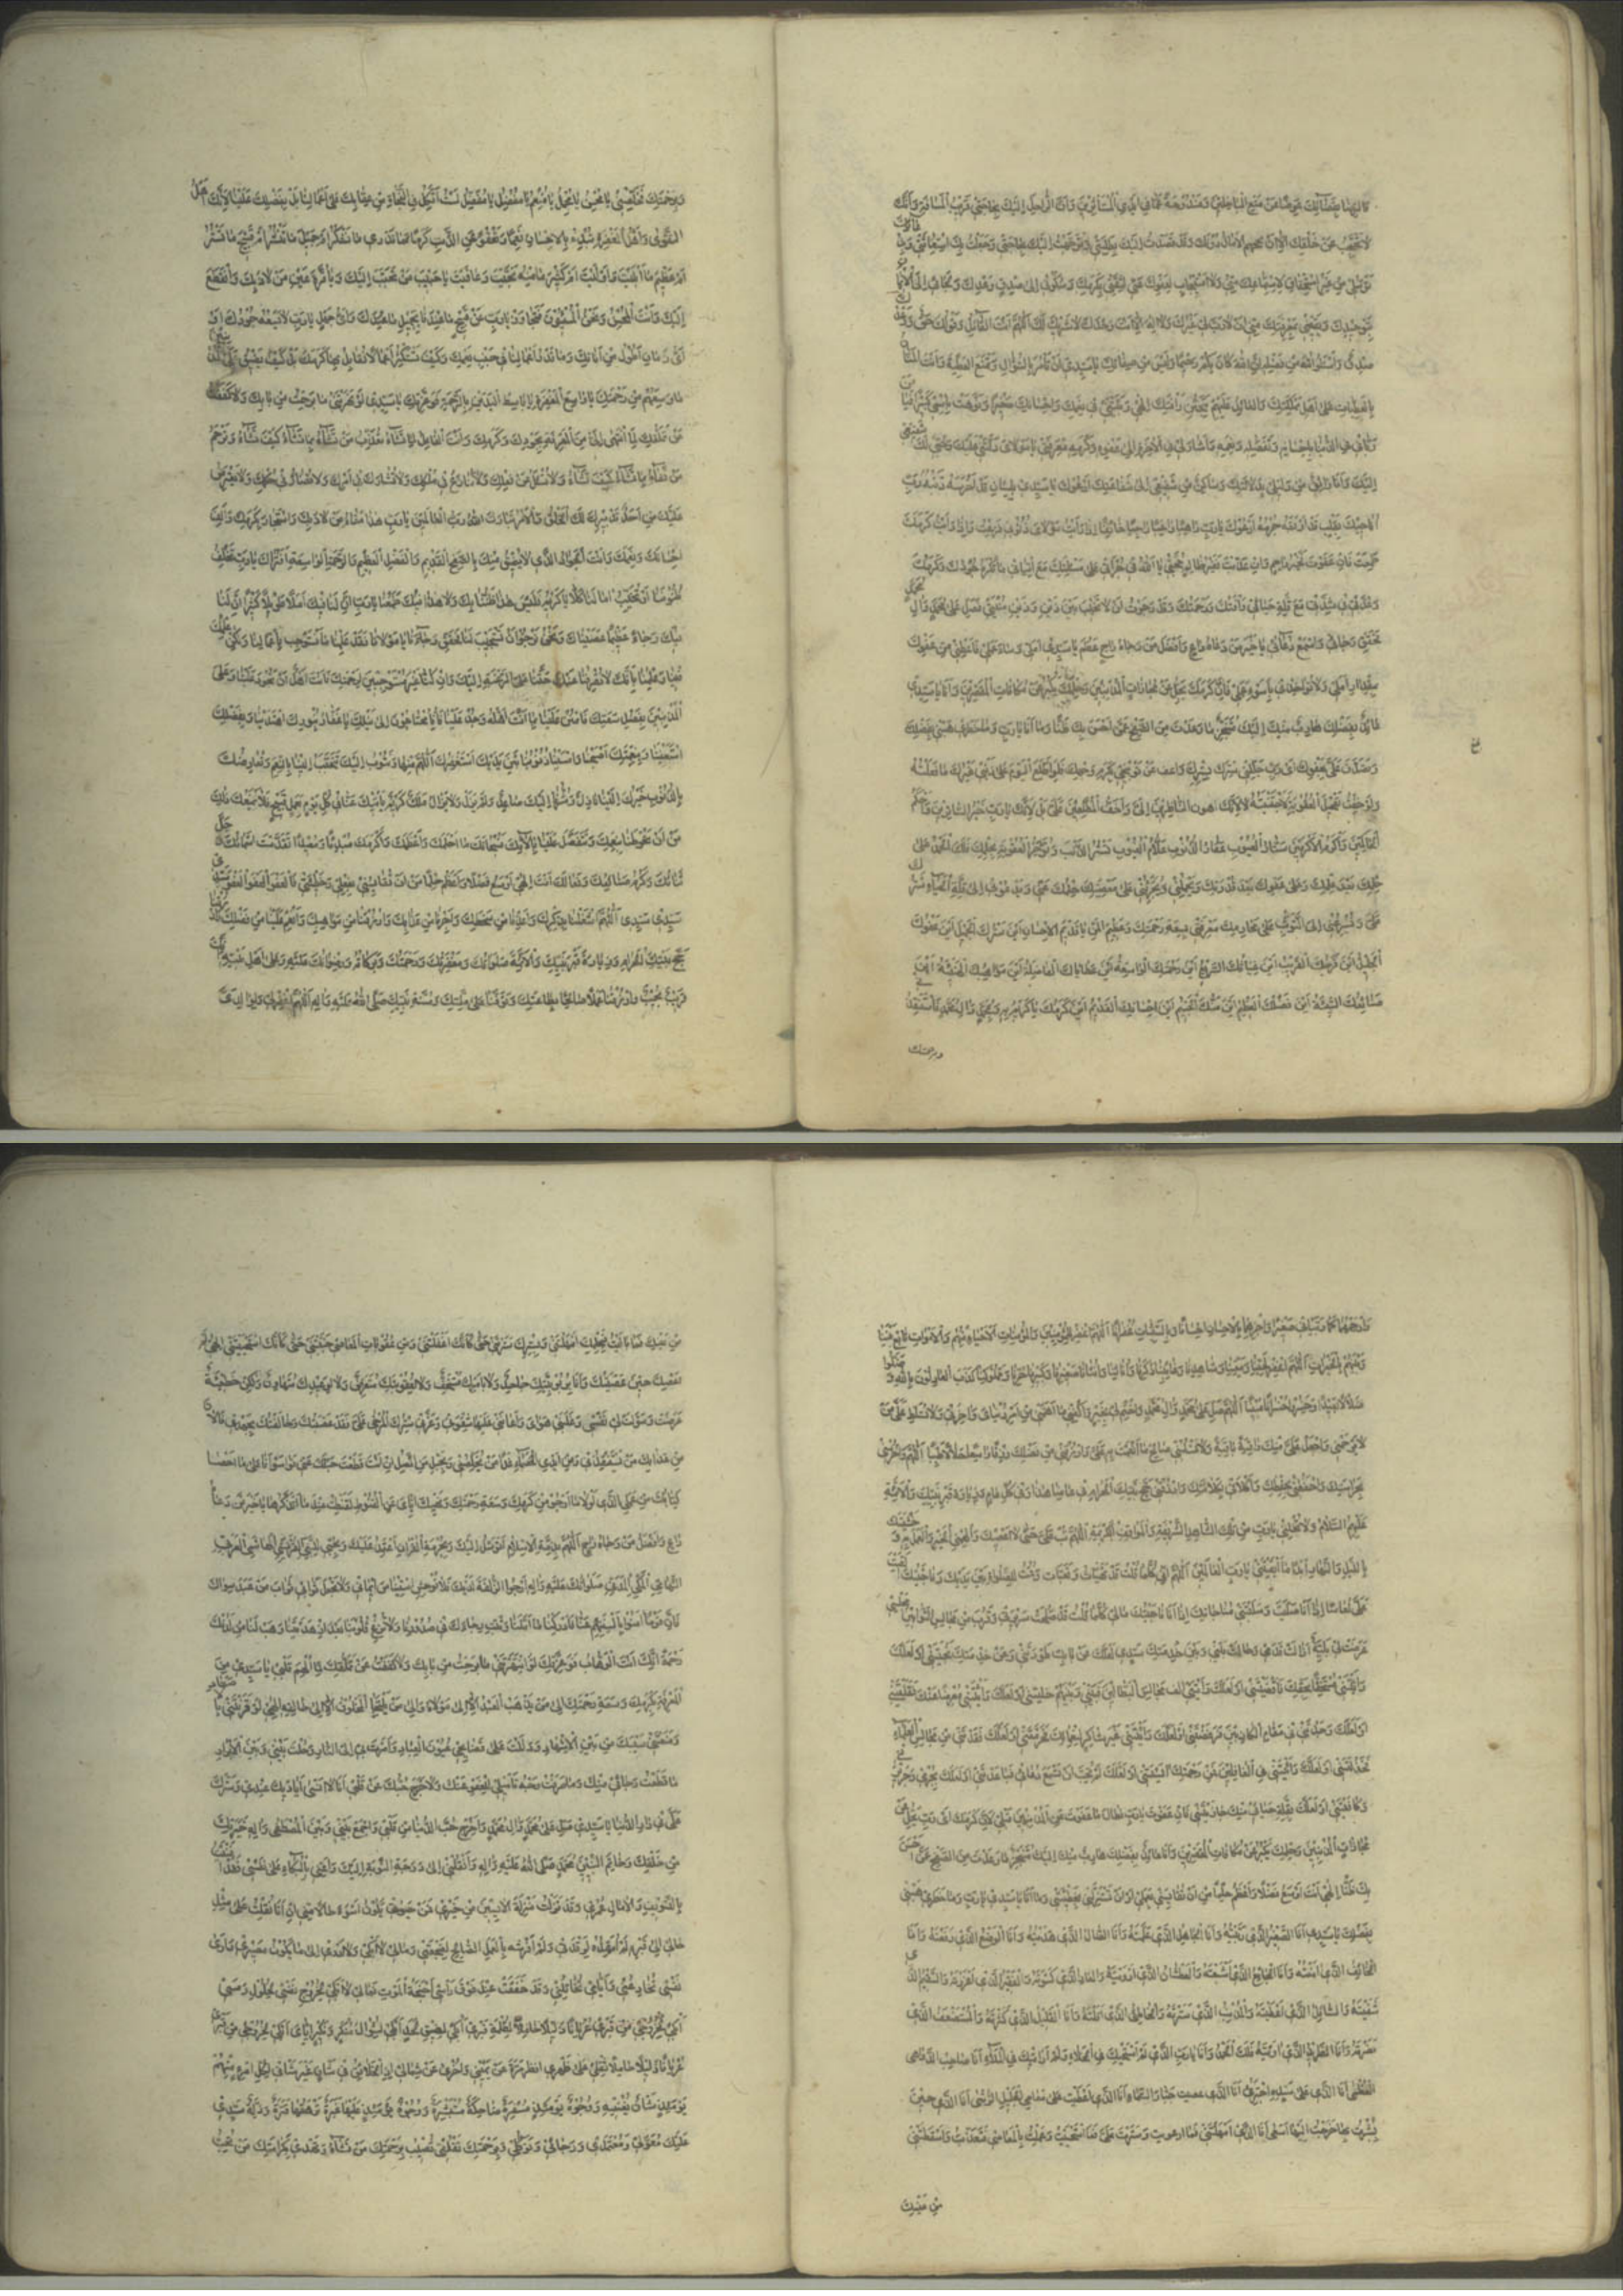 للهفان بفضائلك عوضا من منع الباخلين ومندوحة عما في ايدي المستأثرين وان الراحل اليك يا الهي قريب المسافة وانك
لا تحتجب عن خلقك الا ان تحجبهم الامال دونك وقد قصدت اليك بطلبتي وتوجهت اليك بحاجتي وجعلت بك استغاثتي وبدعائك
توسلي من غير استحقاق لاستماعك مني ولا استيجاب لعفوك عني لثقتي بكرمك وسكوني الى صدق وعدك ولجائي الى الايمان
بتوحيدك ويقيني بمعرفتك مني ان لا رب لي غيرك ولا اله الا انت وحدك لا شريك لك اللهم انت القائل وقولك حق ووعدك
صدق واسئلوا الله من فضله ان الله كان بكم رحيما وليس من صفاتك يا سيدي ان تأمر بالسؤال وتمنع العطية وانت المنان
بالعطيات على اهل مملكتك والعائد عليهم بتحنن رأفتك الهي ربيتني في نعمك واحسانك صغيرا ونوهت باسمي كبيرا فيا
من رباني في الدنيا باحسانه وتفضله ونعمه واشار لي في الاخرة الى عفوه وكرمه معرفتي يا مولاي دلتني عليك وحبي لك شفيعي
اليك وانا واثق من دليلي بدلالتك وساكن من شفيعي الى شفاعتك ادعوك يا سيدي بلسان قد اخرسه ذنبه رب
اناجيك بقلب قد اوبقه جرمه ادعوك يا رب راهبا راغبا راجيا خائفا اذا رأيت مولاي ذنوبي فزعت واذا رأيت كرمك
طمعت فان عفوت فخير راحم وان عذبت فغير ظالم حجتي يا الله في جرأتي على مسئلتك مع اتياني ما تكره جودك وكرمك
وعدتي في شدتي مع قلة حيائي رأفتك ورحمتك وقد رجوت ان لا تخيب بين ذين وذين منيتي فصل على محمد وال محمد
وحقق رجائي واسمع دعائي يا خير من دعاه داع وافضل من رجاه راج عظم يا سيدي املي وساء عملي فاعطني من عفوك
بمقدار املي ولا تؤاخذني باسوء عملي فان كرمك يجل عن مجازات المذنبين وحلمك يكبر عن مكافات المقصرين وانا يا سيدي
عائذ بفضلك هارب منك اليك متنجز ما وعدت من الصفح عمن احسن بك ظنا وما انا يا رب وما خطري هبني بفضلك
وتصدق علي بعفوك اي رب جللني بسترك واعف عن توبيخي بكرم وجهك فلو اطلع اليوم على ذنبي غيرك ما فعلته
ولو خفت تعجيل العقوبة لاجتنبته لا لانك اهون الناظرين الي واخف المطلعين علي بل لانك يا رب خير الساترين واحكم
الحاكمين واكرم الاكرمين ستار العيوب غفار الذنوب علام الغيوب تستر الذنب بكرمك وتؤخر العقوبة بحلمك فلك الحمد على
حلمك بعد علمك وعلى عفوك بعد قدرتك ويحملني ويجرئني على معصيتك حلمك عني ويدعوني الى قلة الحياء سترك
علي ويسرعني الى التوثب على محارمك معرفتي بسعة رحمتك وعظيم عفوك يا قديم الاحسان اين سترك الجميل اين عفوك
الجليل اين فرجك القريب اين غياثك السريع اين رحمتك الواسعة اين عطاياك الفاضلة اين مواهبك الهنيئة اين
صنائعك السنية اين فضلك العظيم اين منك الجسيم اين احسانك القديم اين كرمك يا كريم به وبمحمد وال محمد فاستنقذني
وبرحمتك
وبرحمتك فخلصني يا محسن يا مجمل يا منعم يا مفضل لست اتكل في النجاة من عقابك على اعمالنا بل بفضلك علينا لانك اهل
التقوى واهل المغفرة تبدئ بالاحسان نعما وتعفو عن الذنب كرما فما ندري ما نشكر اجميل ما تنشر ام قبيح ما تستر
ام عظيم ما ابليت واوليت ام كثير ما منه نجيت وعافيت يا حبيب من تحبب اليك ويا قرة عين من لاذ بك وانقطع
اليك وانت المحسن ونحن المسيئون فتجاوز يا رب عن قبيح ما عندنا بجميل ما عندك واي جهل يا رب لا يسعه جودك او
اي زمان اطول من اناتك وما قدر اعمالنا في جنب نعمك وكيف نستكثر اعمالا نقابل بها كرمك بل كيف يضيق على المذنبين
ما وسعهم من رحمتك يا واسع المغفرة يا باسط اليدين بالرحمة فوعزتك يا سيدي لو نهرتني ما برحت من بابك ولا كففت
عن تملقك لما انتهى الي من المعرفة بجودك وكرمك وانت الفاعل لما تشاء تعذب من تشاء بما تشاء كيف تشاء وترحم
من تشاء بما تشاء كيف تشاء ولا تسئل عن فعلك ولا تنازع في ملكك ولا تشارك في امرك ولا تضاد في حكمك ولا يعترض
عليك احد في تدبيرك لك الخلق والامر تبارك الله رب العالمين يا رب هذا مقام من لاذ بك واستجار بكرمك والف
احسانك ونعمك وانت الجواد الذي لا يضيق عفوك بالصفح القديم والفضل العظيم والرحمة الواسعة افتراك يا رب تخلف
ظنوننا او تخيب امالنا كلا يا كريم فليس هذا ظننا بك ولا هذا فيك طمعنا يا رب ان لنا فيك املا طويلا كثيرا ان لنا
فيك رجاء عظيما عصيناك ونحن نرجو ان تستر علينا ودعوناك ونحن نرجو ان تستجيب لنا فحقق رجاءنا يا مولانا فقد علمنا ما نستوجب باعمالنا ولكن علمك
فينا وعلمنا بانك لا تصرفنا عنك حثنا على الرغبة اليك وان كنا غير مستوجبين لرحمتك فانت اهل ان تجود علينا وعلى
المذنبين بفضل سعتك فامنن علينا بما انت اهله وجد علينا فانا محتاجون الى نيلك يا غفار بنورك اهتدينا وبفضلك
استغنينا وبنعمتك اصبحنا وامسينا ذنوبنا بين يديك نستغفرك اللهم منها ونتوب اليك تتحبب الينا بالنعم ونعارضك
بالذنوب خيرك الينا نازل وشرنا اليك صاعد ولم يزل ولا يزال ملك كريم يأتيك عنا في كل يوم بعمل قبيح فلا يمنعك ذلك
من ان تحوطنا بنعمك وتتفضل علينا بالائك فسبحانك ما احلمك واعظمك واكرمك مبدئا ومعيدا تقدست اسماؤك وجل
ثناؤك وكرم صنائعك وفعالك انت الهي اوسع فضلا واعظم حلما من ان تقايسني بفعلي وخطيئتي فالعفو العفو العفو سيدي
سيدي سيدي اللهم اشغلنا بذكرك واعذنا من سخطك واجرنا من عذابك وارزقنا من مواهبك وانعم علينا من فضلك وارزقنا
حج بيتك الحرام وزيارة قبر نبيك والائمة صلواتك ومغفرتك ورحمتك وبركاتك ورضوانك عليه وعلى اهل بيته انك
قريب مجيب وارزقنا عملا صالحا بطاعتك وتوفنا على ملتك وسنة نبيك صلى الله عليه واله اللهم اغفر لي ولوالدي
وارحمهما كما ربياني صغيرا واجزهما بالاحسان احسانا وبالسيئات غفرانا اللهم اغفر للمؤمنين والمؤمنات الاحياء منهم والاموات تابع بيننا
وبينهم بالخيرات اللهم اغفر لحينا وميتنا وشاهدنا وغائبنا ذكرنا وانثانا صغيرنا وكبيرنا حرنا ومملوكنا كذب العادلون بالله وضلوا
ضلالا بعيدا وخسروا خسرانا مبينا اللهم صل على محمد وال محمد واختم لي بخير واكفني ما اهمني من امر دنياي واخرتي ولا تسلط علي من
لا يرحمني واجعل علي منك واقية باقية ولا تسلبني صالح ما انعمت به علي وارزقني من فضلك رزقا واسعا حلالا طيبا اللهم واحرسني
بحراستك واحفظني بحفظك واكلأني بكلائتك وارزقني حج بيتك الحرام في عامنا هذا وفي كل عام وزيارة قبر نبيك والائمة
عليهم السلام ولا تخلني يا رب من تلك المشاهد الشريفة والمواقف الكريمة اللهم تب علي حتى لا اعصيك والهمني الخير والعمل به وخشيتك
بالليل والنهار ابدا ما ابقيتني يا رب العالمين اللهم اني كلما قلت قد تهيأت وتعبأت وقمت للصلوة بين يديك وناجيتك القيت
علي نعاسا اذا انا صليت وسلبتني مناجاتك اذا انا ناجيتك مالي كلما قلت قد صلحت سريرتي وقرب من مجالس التوابين مجلسي
عرضت لي بلية ازالت قدمي وحالت بيني وبين خدمتك سيدي لعلك عن بابك طردتني وعن خدمتك نحيتني او لعلك
رأيتني مستخفا بحقك فاقصيتني او لعلك رأيتني الف مجالس البطالين فبيني وبينهم خليتني او لعلك رأيتني معرضا عنك فقليتني
او لعلك وجدتني في مقام الكاذبين فرفضتني او لعلك رأيتني غير شاكر لنعمائك فحرمتني او لعلك فقدتني من مجالس العلماء
فخذلتني او لعلك رأيتني في الغافلين فمن رحمتك ايستني او لعلك لم تحب ان تسمع دعائي فباعدتني او لعلك بجرمي وجريرتي
كافيتني او لعلك بقلة حيائي منك جازيتني فان عفوت يا رب فطالما عفوت عن المذنبين قبلي لان كرمك اي رب يجل عن
مجازات المذنبين وحلمك يكبر عن مكافات المقصرين وانا عائذ بفضلك هارب منك اليك متنجز ما وعدت من الصفح عمن احسن
بك ظنا الهي انت اوسع فضلا واعظم حلما من ان تقايسني بعملي او ان تستزلني بخطيئتي وما انا يا سيدي يا رب وما خطري هبني
بفضلك يا سيدي انا الصغير الذي ربيته وانا الجاهل الذي علمته وانا الضال الذي هديته وانا الوضيع الذي رفعته وانا
الخائف الذي امنته وانا الجائع الذي اشبعته والعطشان الذي ارويته والعاري الذي كسوته والفقير الذي اغنيته والسقيم الذي
شفيته والسائل الذي اعطيته والمذنب الذي سترته والخاطئ الذي اقلته وانا القليل الذي كثرته والمستضعف الذي
نصرته وانا الطريد الذي اويته فلك الحمد وانا يا رب الذي لم استحيك في الخلاء ولم اراقبك في الملاء انا صاحب الدواهي
العظمى انا الذي على سيده اجترى انا الذي عصيت جبار السماء انا الذي اعطيت على معاصي الجليل الرشى انا الذي حين
بشرت بها خرجت اليها اسعى انا الذي امهلتني فما ارعويت وسترت علي فما استحييت وعملت بالمعاصي فتعديت واسقطتني
من عينك
من عينك فما باليت فبحلمك امهلتني وبسترك سترتني حتى كانك اغفلتني ومن عقوبات المعاصي جنبتني حتى كانك استحييتني الهي لم
اعصك حين عصيتك وانا بربوبيتك جاحد ولا بامرك مستخف ولا لعقوبتك متعرض ولا لوعيدك متهاون ولكن خطيئة
عرضت وسولت لي نفسي وغلبني هواي واعانني عليها شقوتي وغرني سترك المرخى علي فقد عصيتك وخالفتك بجهدي فالان
من عذابك من يستنقذني ومن ايدي الخصماء غدا من يخلصني وبحبل من اتصل ان انت قطعت حبلك عني فواسوأتا على ما احصى
كتابك من عملي الذي لولا ما ارجو من كرمك وسعة رحمتك ونهيك اياي عن القنوط لقنطت عند ما اتذكرها يا خير من دعاه
داع وافضل من رجاه راج اللهم بذمة الاسلام اتوسل اليك وبحرمة القران اعتمد عليك وبحبي للنبي الامي القرشي الهاشمي العربي
التهامي المكي المدني صلواتك عليه واله ارجو الزلفة لديك فلا توحش استيناس ايماني ولا تجعل ثوابي ثواب من عبد سواك
فان قوما امنوا بالسنتهم ليحقنوا به دماءهم فادركوا ما املوا وانا امنا بك بالسنتنا وقلوبنا لتعفو عنا فادركنا ما املنا وثبت رجاءك في صدورنا ولا تزغ قلوبنا بعد اذ هديتنا وهب لنا من لدنك
رحمة انك انت الوهاب فوعزتك لو انتهرتني ما برحت من بابك ولا كففت عن تملقك لما الهم قلبي يا سيدي من
المعرفة بكرمك وسعة رحمتك الى من يذهب العبد الا الى مولاه والى من يلتجئ المخلوق الا الى خالقه الهي لو قرنتني بالاصفاد
ومنعتني سيبك من بين الاشهاد ودللت على فضائحي عيون العباد وامرت بي الى النار وحلت بيني وبين الابرار
ما قطعت رجائي منك وما صرفت وجه تأميلي للعفو عنك ولا خرج حبك من قلبي انا لا انسى اياديك عندي وسترك
علي في دار الدنيا يا سيدي صل على محمد وال محمد واخرج حب الدنيا من قلبي واجمع بيني وبين المصطفى واله خيرتك
من خلقك وخاتم النبيين محمد صلى الله عليه واله وانقلني الى درجة التوبة اليك واعني بالبكاء على نفسي فقد افنيت
بالتسويف والامال عمري وقد نزلت منزلة الايسين من خيري فمن يكون اسوء حالا مني ان انا نقلت على مثل
حالي الى قبر لم امهده لرقدتي ولم افرشه بالعمل الصالح لضجعتي ومالي لا ابكي ولا ادري الى ما يكون مصيري وارى
نفسي تخادعني وايامي تخاتلني وقد خفقت عند رأسي اجنحة الموت فمالي لا ابكي لخروج نفسي
ابكي لظلمة قبري ابكي لضيق لحدي ابكي لسؤال منكر ونكير اياي ابكي لخروجي من قبري
عريانا ذليلا حاملا ثقلي على ظهري انظر مرة عن يميني واخرى عن شمالي اذ الخلائق في شأن غير شأني لكل امرئ منهم
يومئذ شأن يغنيه وجوه يومئذ مسفرة ضاحكة مستبشرة ووجوه يومئذ عليها غبرة ترهقها قترة وذلة سيدي
عليك معولي ومعتمدي ورجائي وتوكلي وبرحمتك تعلقي تصيب برحمتك من تشاء وتهدي بكرامتك من تحب